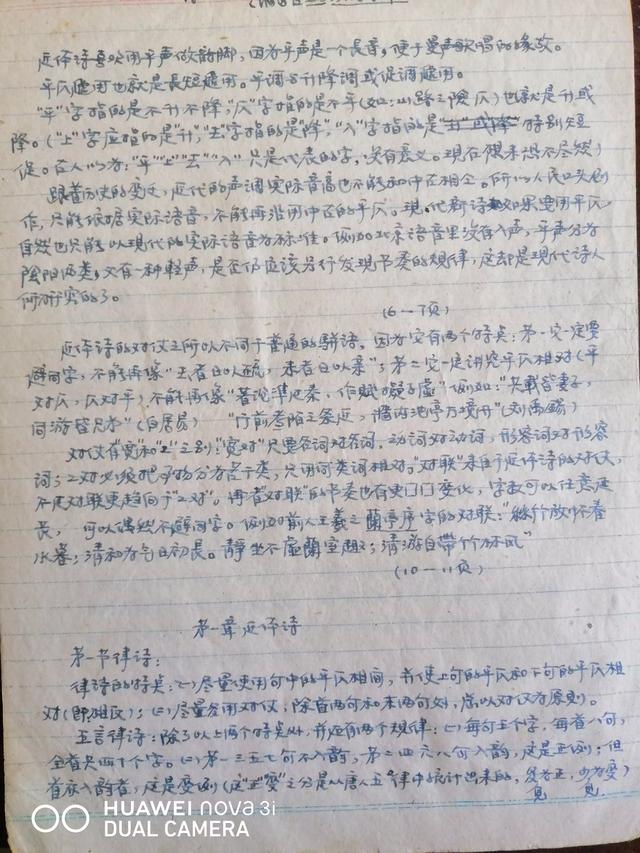 近体诗喜欢用平声做韵脚，因为平声是一个长音，便于曼声歌唱的缘故。
平仄递用也就是长短递用。平调与升降调或促调递用。
"平"字指的是不升不降，"仄"字指的是不平(如:山路之险仄)也就是升或
降。("上"字应指的是"升"，"去"字指的是"降"，"入"字指的是特别短
促。古人以为:"平""上""去""入"只是代表的字，没有意义。现在想来恐不尽然)
跟着历史的变迁，近代的声调实际音高也不能和中古相全。所以人民口头创
作，只能依据实际语音，不能再沿用中古的平仄。现代新诗如果要用平仄
自然也只能以现代的实际语音为标准。例如北京语音里没有入声，平声分为
阴阳两类，又有一种轻声，是否仍应该另行发现节奏的规律，这却是现代诗人
所研究的了。
(6—7页)
近体诗的对仗之所以不同于普通的骈语。因为它有两个特点:第一它一定要
避同字，不能再像"去者日以疏，来者日以亲"；第二它一定讲究平仄相对(平
对仄，仄对平)，不能再像"著论准过秦，作赋拟子虚"例如:"共载皆妻子，
同游即兄弟"(白居易) "行前考陌三条近，隔两池亭万境闲"(刘禹锡)
对仗有"宽"和"工"之别:"宽对"只要名词对名词。动词对动词，形容词对形容
词；工对必须把事物分为若干类，只用同类词相对。"对联"来自于近体诗的对仗，
不过对联更趋向于"工对"。再者对联"的节奏也有更变化，字数可以任意延
长，可以偶然不避同字。例如前人王羲之兰亭序字的对联:"丝竹放怀春
未暮；清和为气日初长。静坐不虚兰室趣；清游自带竹林风"
(10—11页)
第一章近体诗
第一节律诗:
律诗的特点:(一)尽量使用句中的平仄相间，并使上句的平仄和下句的平仄相
对(即相反)；(二)尽量多用对仗，除首两句和末两句外，总以对仗为原则。
五言律诗:除了以上两个特点外，并还有两个规律:(一)每句五个字，每首八句，
全首共四十个字。(二)第一三五七句不入韵，第二四六八句入韵，这是正例；但
首有入韵者，这是变例(这"正""变"之分是以唐人五律中统计出来的，多见为正，少见为变)
HUAWEI nova 3i
DUAL CAMERA